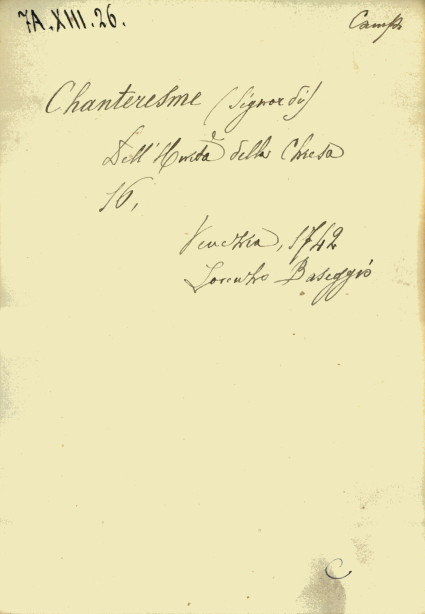 7A.XIII.26.
Camp.
Chanteresme (Signor di)
Dell'Unità della Chiesa
16,
Venezia, 1742
Lorenzo Baseggio
C